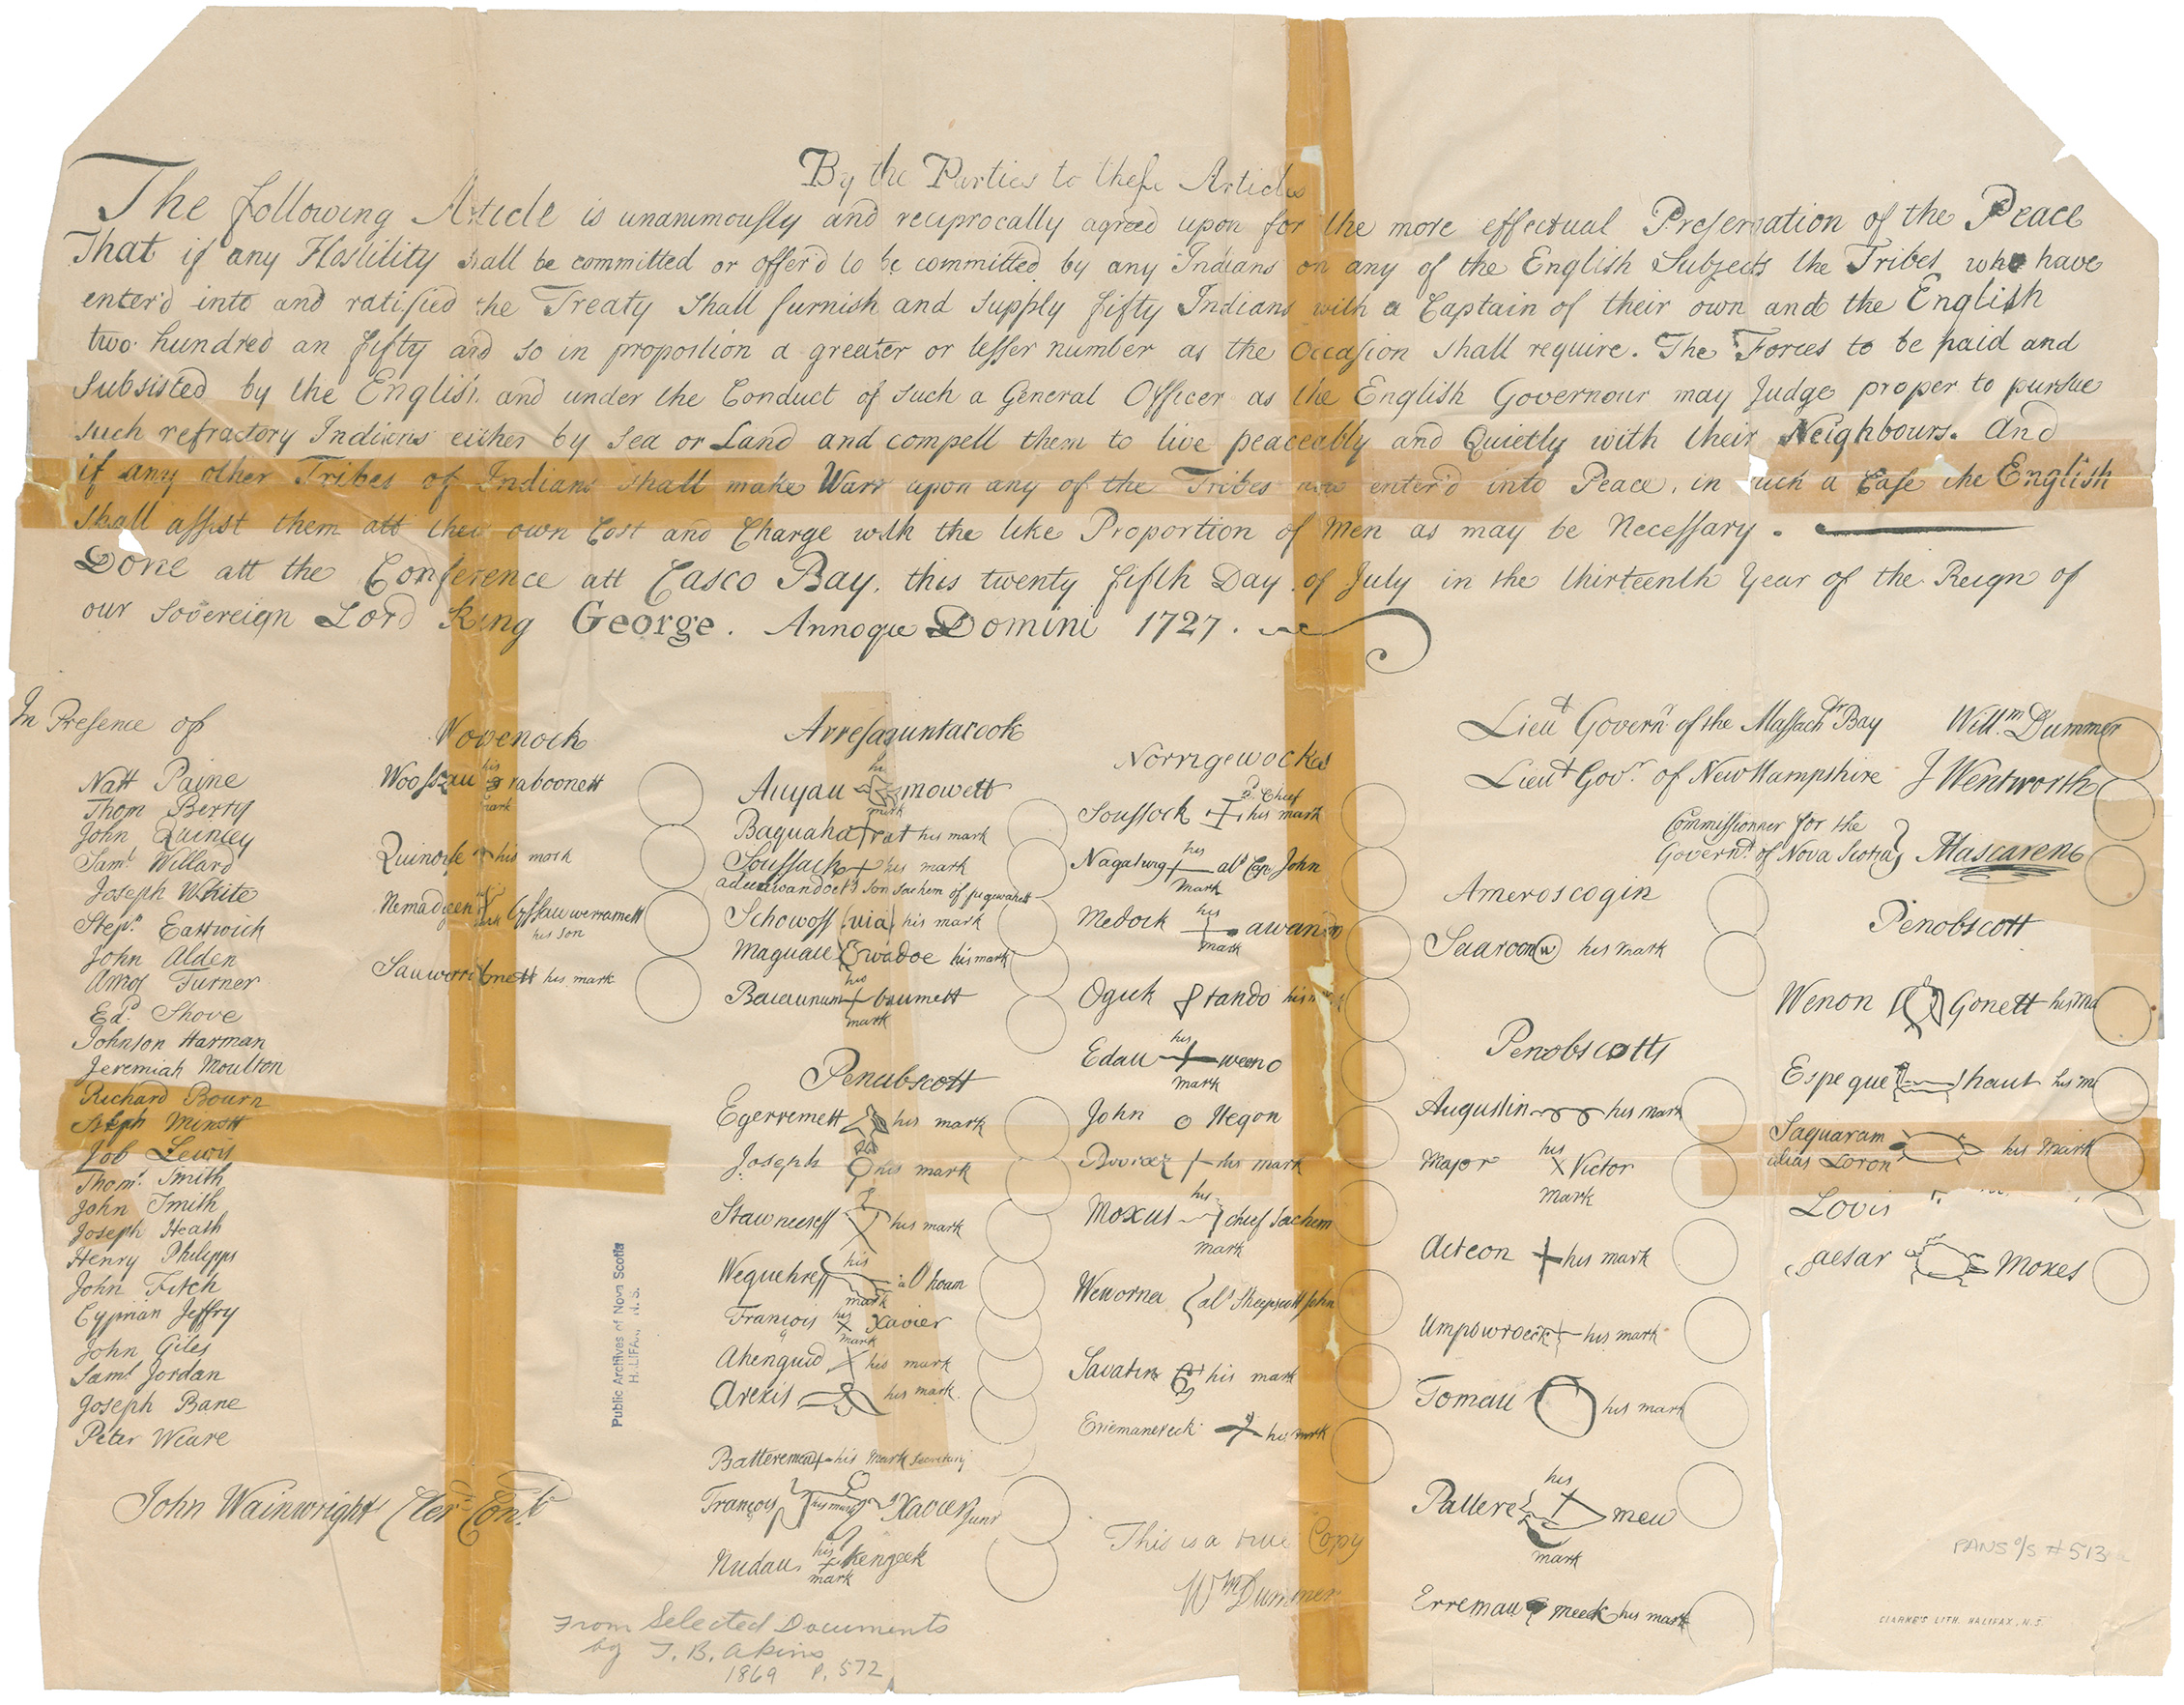 By the Parties to these Articles
The following Article is unanimously and reciprocally agreed upon for the more effectual Preservation of the Peace
That if any Hostility shall be committed or offer'd to be committed by any Indians on any of the English Subjects the Tribes who have
enter'd into and ratified the Treaty Shall furnish and Supply fifty Indians with a Captain of their own and the English
two hundred an fifty and so in proportion a greater or lesser number as the Occasion shall require. The Forces to be paid and
Subsisted by the English and under the Conduct of such a General Officer as the English Governour may Judge proper to pursue
such refractory Indians either by Sea or Land and compell them to live peaceably and Quietly with their Neighbours. And
if any other Tribes of Indians shall make Warr upon any of the Tribes now enter'd into Peace, in such a Case the English
shall assist them att their own Cost and Charge with the like Proportion of Men as may be Necessary.
Done att the Conference att Casco Bay, this twenty fifth Day of July in the thirteenth Year of the Reign of
our Sovereign Lord King George. Annoque Domini 1727.
In Presence of
Natt Paine
Thom Berry
John Quinley
Saml. Willard
Joseph White
Stepn. Eastwick
John Alden
Amos Turner
Edd. Shove
Johnson Harman
Jeremiah Moulton
Richard Bourn
Steph Minott
Job Lewis
Thoms. Smith
John Smith
Joseph Heath
Henry Philipps
John Fitch
Cyprian Jeffry
John Giles
Saml. Jordan
Joseph Bane
Peter Weare
John Wainwright Cler. Conf.
Wovenock
Woossau his mark raboonett
Quinoise his mark
Nemadgeen his mark his son
his mark
Arresaguntacook
Auyau his mark mowett
Baquaha rat his mark
Soussack his mark
adeawandoet's son Sachem of pegwakett
Schowoss (via) his mark
Maguall wadoe his mark
his mark
Penubscott
Egerremett his mark
Joseph his mark
his mark
his mark
François his mark Xavier
Ahenquid his mark
Arexis his mark
his mark Secretary
François his mark Xavier Junr
Nudau his mark kengeek
Norrigewockes
Soussock 2d. Chief his mark
his mark als Cap. John
Medock his mark awando
Oguk tando his
Edau his mark weeno
John Hegon
his mark
Moxus his mark chief Sachem
Weworna als Sheepscott John
Savatin his mark
his mark
This is a true Copy
Wm Dummer
Lieut Governr. of the Massachts Bay Willm. Dummer
Lieut Govr. of New Hampshire J Wentworth
Commissionner for the
Governt. of Nova Scotia Mascarene
Ameroscogin
Saaroon his mark
Penobscotts
Augustin his mark
Major his mark Victor
Acteon his mark
his mark
Tomau his mark
Pattere his mark mew
Erremau meek his mark
Penobscott
Wenon Gonett his ma
Espegue haut his m
Saquaram
alias Loron his mark
Lovis
Caesar Moxes
Public Archives of Nova Scotia
HALIFAX, N.S.
From Selected Documents
by T. B. Akins
1869 P. 572
PANS o/s #513
CLARKE'S LITH. HALIFAX, N.S.